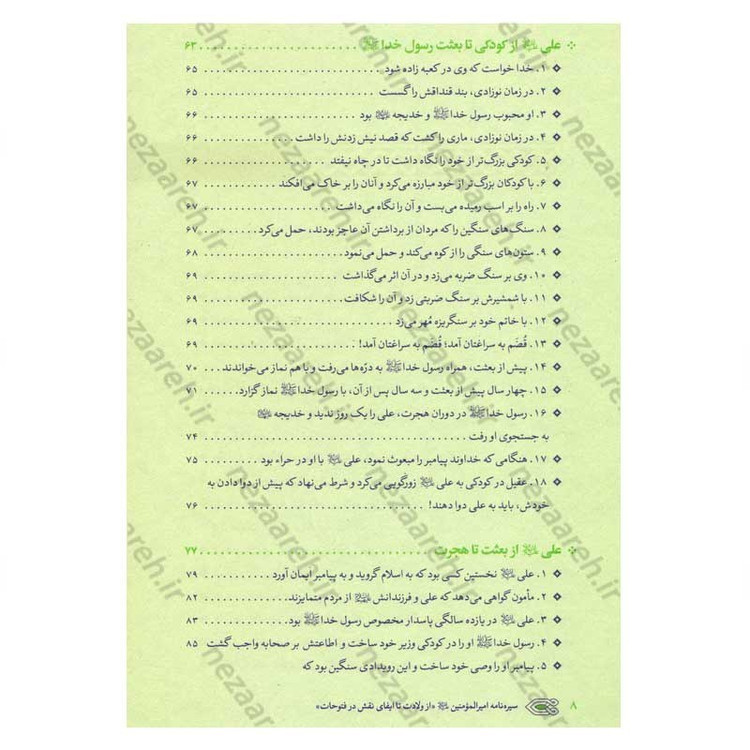 علی ﷷ از کودکی تا بعثت رسول خدا ﷺ ..................... ۶۳
۱. خدا خواست که وی در کعبه زاده شود ..................... ۶۵
۲. در زمان نوزادی، بند قنداقش را گسست ..................... ۶۵
۳. او محبوب رسول خدا ﷺ و خدیجه بود ..................... ۶۶
۴. در زمان نوزادی، ماری را کشت که قصد نیش زدنش را داشت ............. ۶۶
۵. کودکی بزرگ‌تر از خود را نگاه داشت تا در چاه نیفتد ................. ۶۶
۶. با کودکان بزرگ‌تر از خود مبارزه می‌کرد و آنان را بر خاک می‌افکند ....... ۶۷
۷. راه را بر اسب رمیده می‌بست و آن را نگاه می‌داشت ................. ۶۷
۸. سنگ‌های سنگین را که مردان از برداشتن آن عاجز بودند، حمل می‌کرد ....... ۶۷
۹. ستون‌های سنگی را از کوه می‌کند و حمل می‌نمود ................. ۶۸
۱۰. وی بر سنگ ضربه می‌زد و در آن اثر می‌گذاشت ................. ۶۹
۱۱. با شمشیرش بر سنگ ضربتی زد و آن را شکافت ................. ۶۹
۱۲. با خاتم خود بر سنگریزه مُهر می‌زد ..................... ۶۹
۱۳. قُضَم به سراغتان آمد؛ قُضَم به سراغتان آمد! ................. ۶۹
۱۴. پیش از بعثت، همراه رسول خدا ﷺ به درّه‌ها می‌رفت و با هم نماز می‌خواندند .... ۷۰
۱۵. چهار سال پیش از بعثت و سه سال پس از آن، با رسول خدا ﷺ نماز گزارد .... ۷۱
۱۶. رسول خدا ﷺ در دوران هجرت، علی را یک روز ندید و خدیجه
به جستجوی او رفت ..................... ۷۴
۱۷. هنگامی که خداوند پیامبر را مبعوث نمود، علی با او در حراء بود ......... ۷۵
۱۸. عقیل در کودکی به علی زورگویی می‌کرد و شرط می‌نهاد که پیش از دوا دادن به
خودش، باید به علی دوا دهند! ..................... ۷۶
علی از بعثت تا هجرت ..................... ۷۷
۱. علی نخستین کسی بود که به اسلام گروید و به پیامبر ایمان آورد ......... ۷۹
۲. مأمون گواهی می‌دهد که علی و فرزندانش از مردم متمایزند ............. ۸۲
۳. علی در یازده سالگی پاسدار مخصوص رسول خدا ﷺ بود ............. ۸۳
۴. رسول خدا ﷺ او را در کودکی وزیر خود ساخت و اطاعتش بر صحابه واجب گشت ۸۵
۵. پیامبر او را وصی خود ساخت و این رویدادی سنگین بود که
۸ سیره‌نامه امیرالمؤمنین «از ولادت تا ایفای نقش در فتوحات»
nezaareh.ir